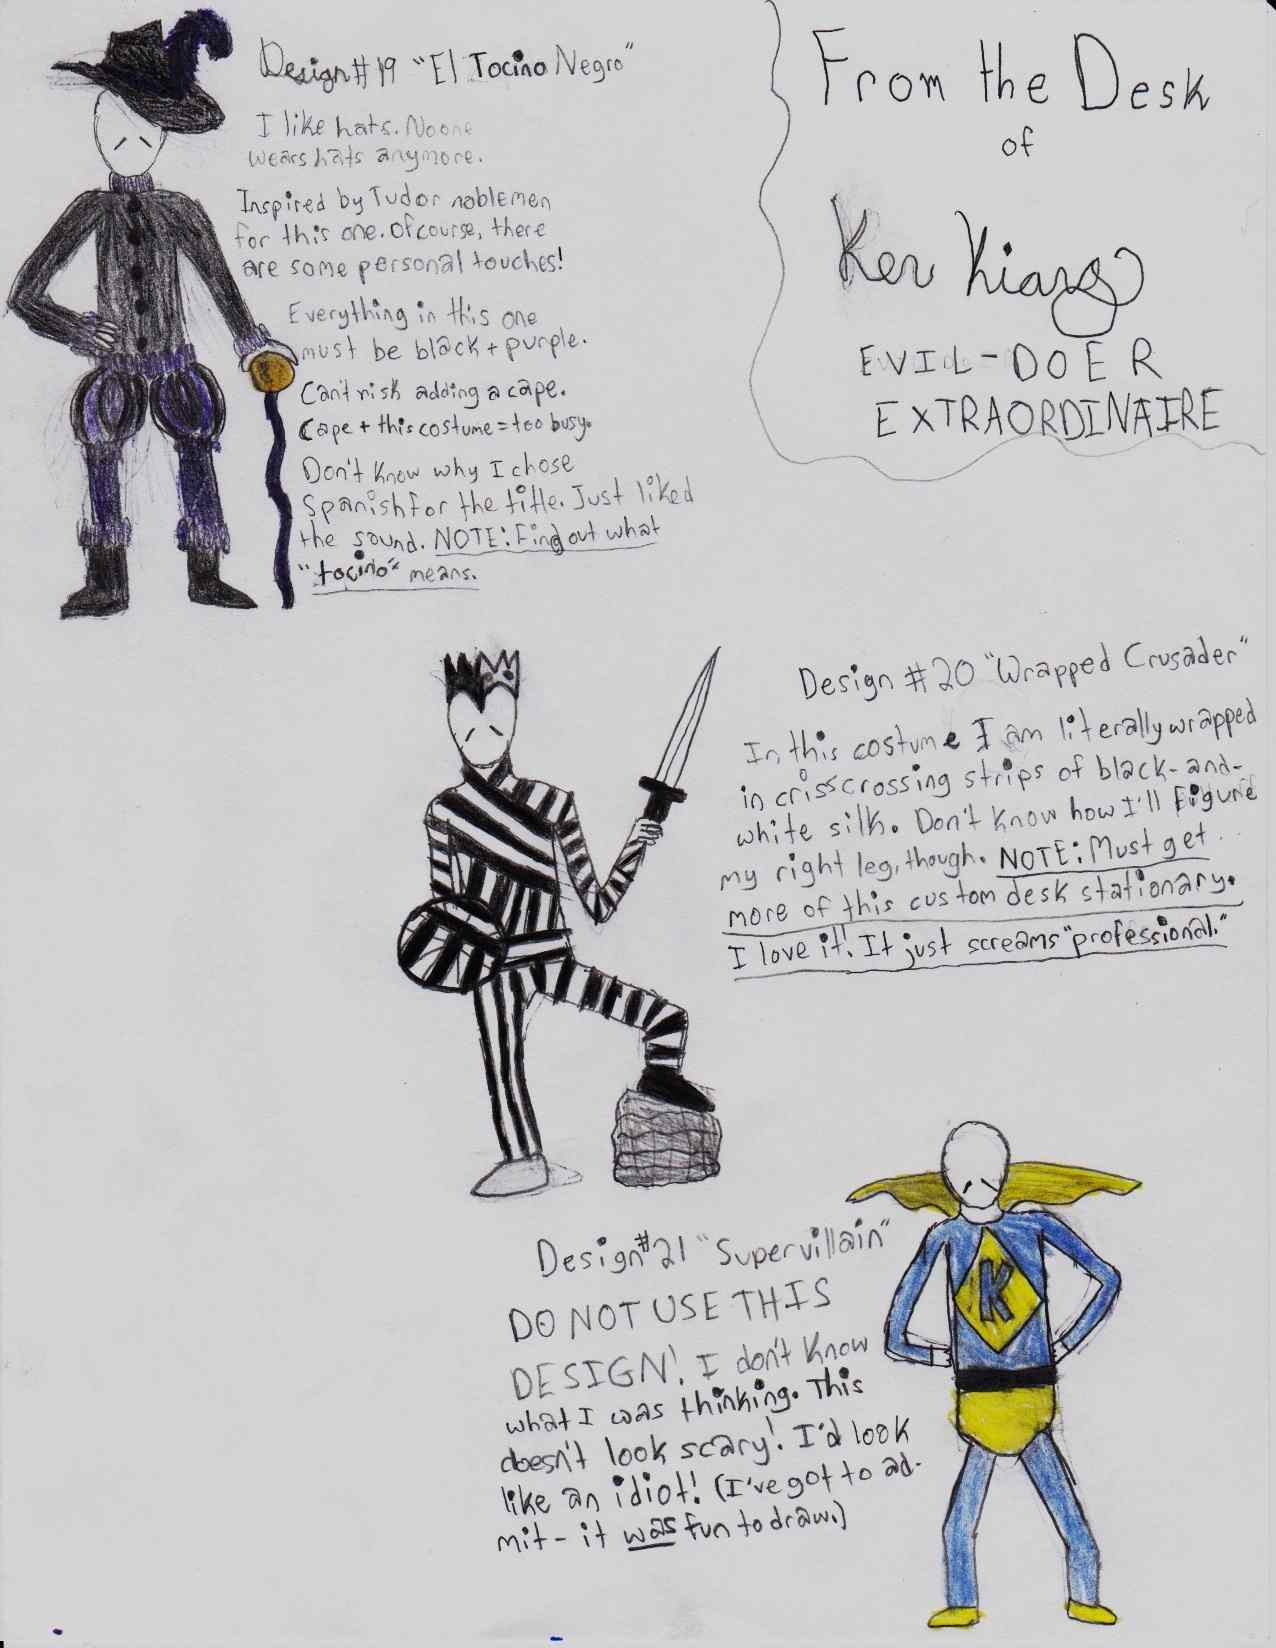 Design #19 "El Tocino Negro"
I like hats. No one
wears hats anymore.
Inspired by Tudor noblemen
for this one. Of course, there
are some personal touches!
Everything in this one
must be black + purple.
Can't risk adding a cape.
Cape + this costume = too busy.
Don't know why I chose
Spanish for the title. Just liked
the sound. NOTE: Find out what
"tocino" means.
From the Desk
of
Ken Kiang
EVIL-DOER
EXTRAORDINAIRE
Design #20 "Wrapped Crusader"
In this costume I am literally wrapped
in crisscrossing strips of black-and-
white silk. Don't know how I'll figure
my right leg, though. NOTE: Must get
more of this custom desk stationary.
I love it! It just screams "professional."
Design #21 "Supervillain"
DO NOT USE THIS
DESIGN! I don't know
what I was thinking. This
doesn't look scary! I'd look
like an idiot! (I've got to ad-
mit - it was fun to draw.)
K